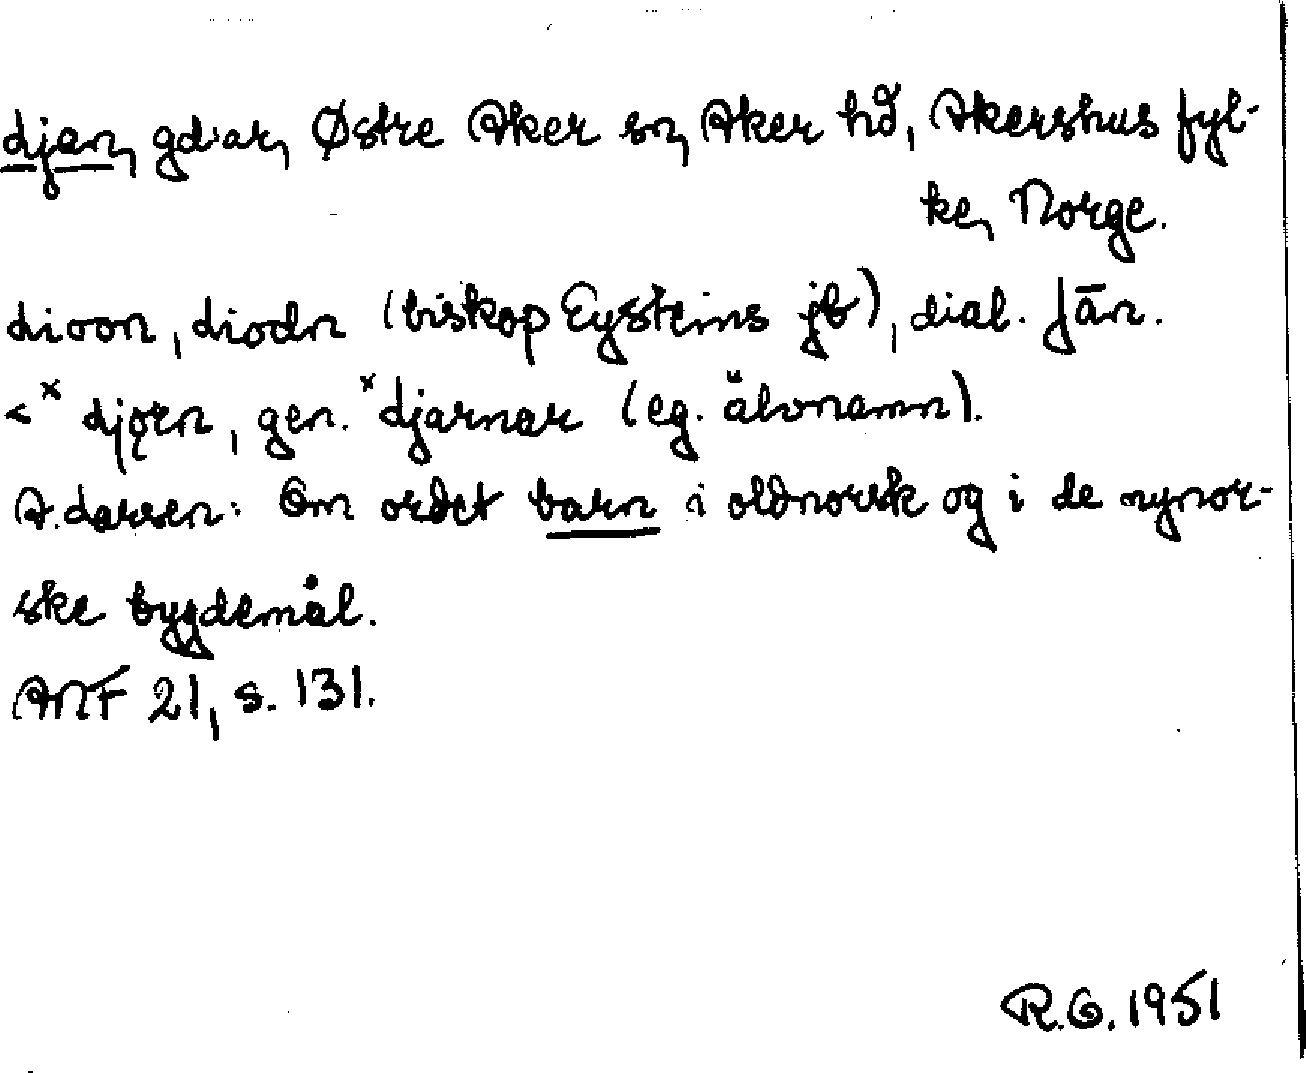 Ljan, gd:ar, Østre Aker sn, Aker hd, Akershus fyl-
ke, Norge.
Lioon, Liodn (biskop Eysteins jb), dial. Jān.
< ˣLjǫrn, gen. ˣLjarnar (eg. älvnamn).
A. Larsen: Om ordet barn i oldnorsk og i de nynor-
ske bygdemål.
ANF 21, s. 131.
R.G. 1951